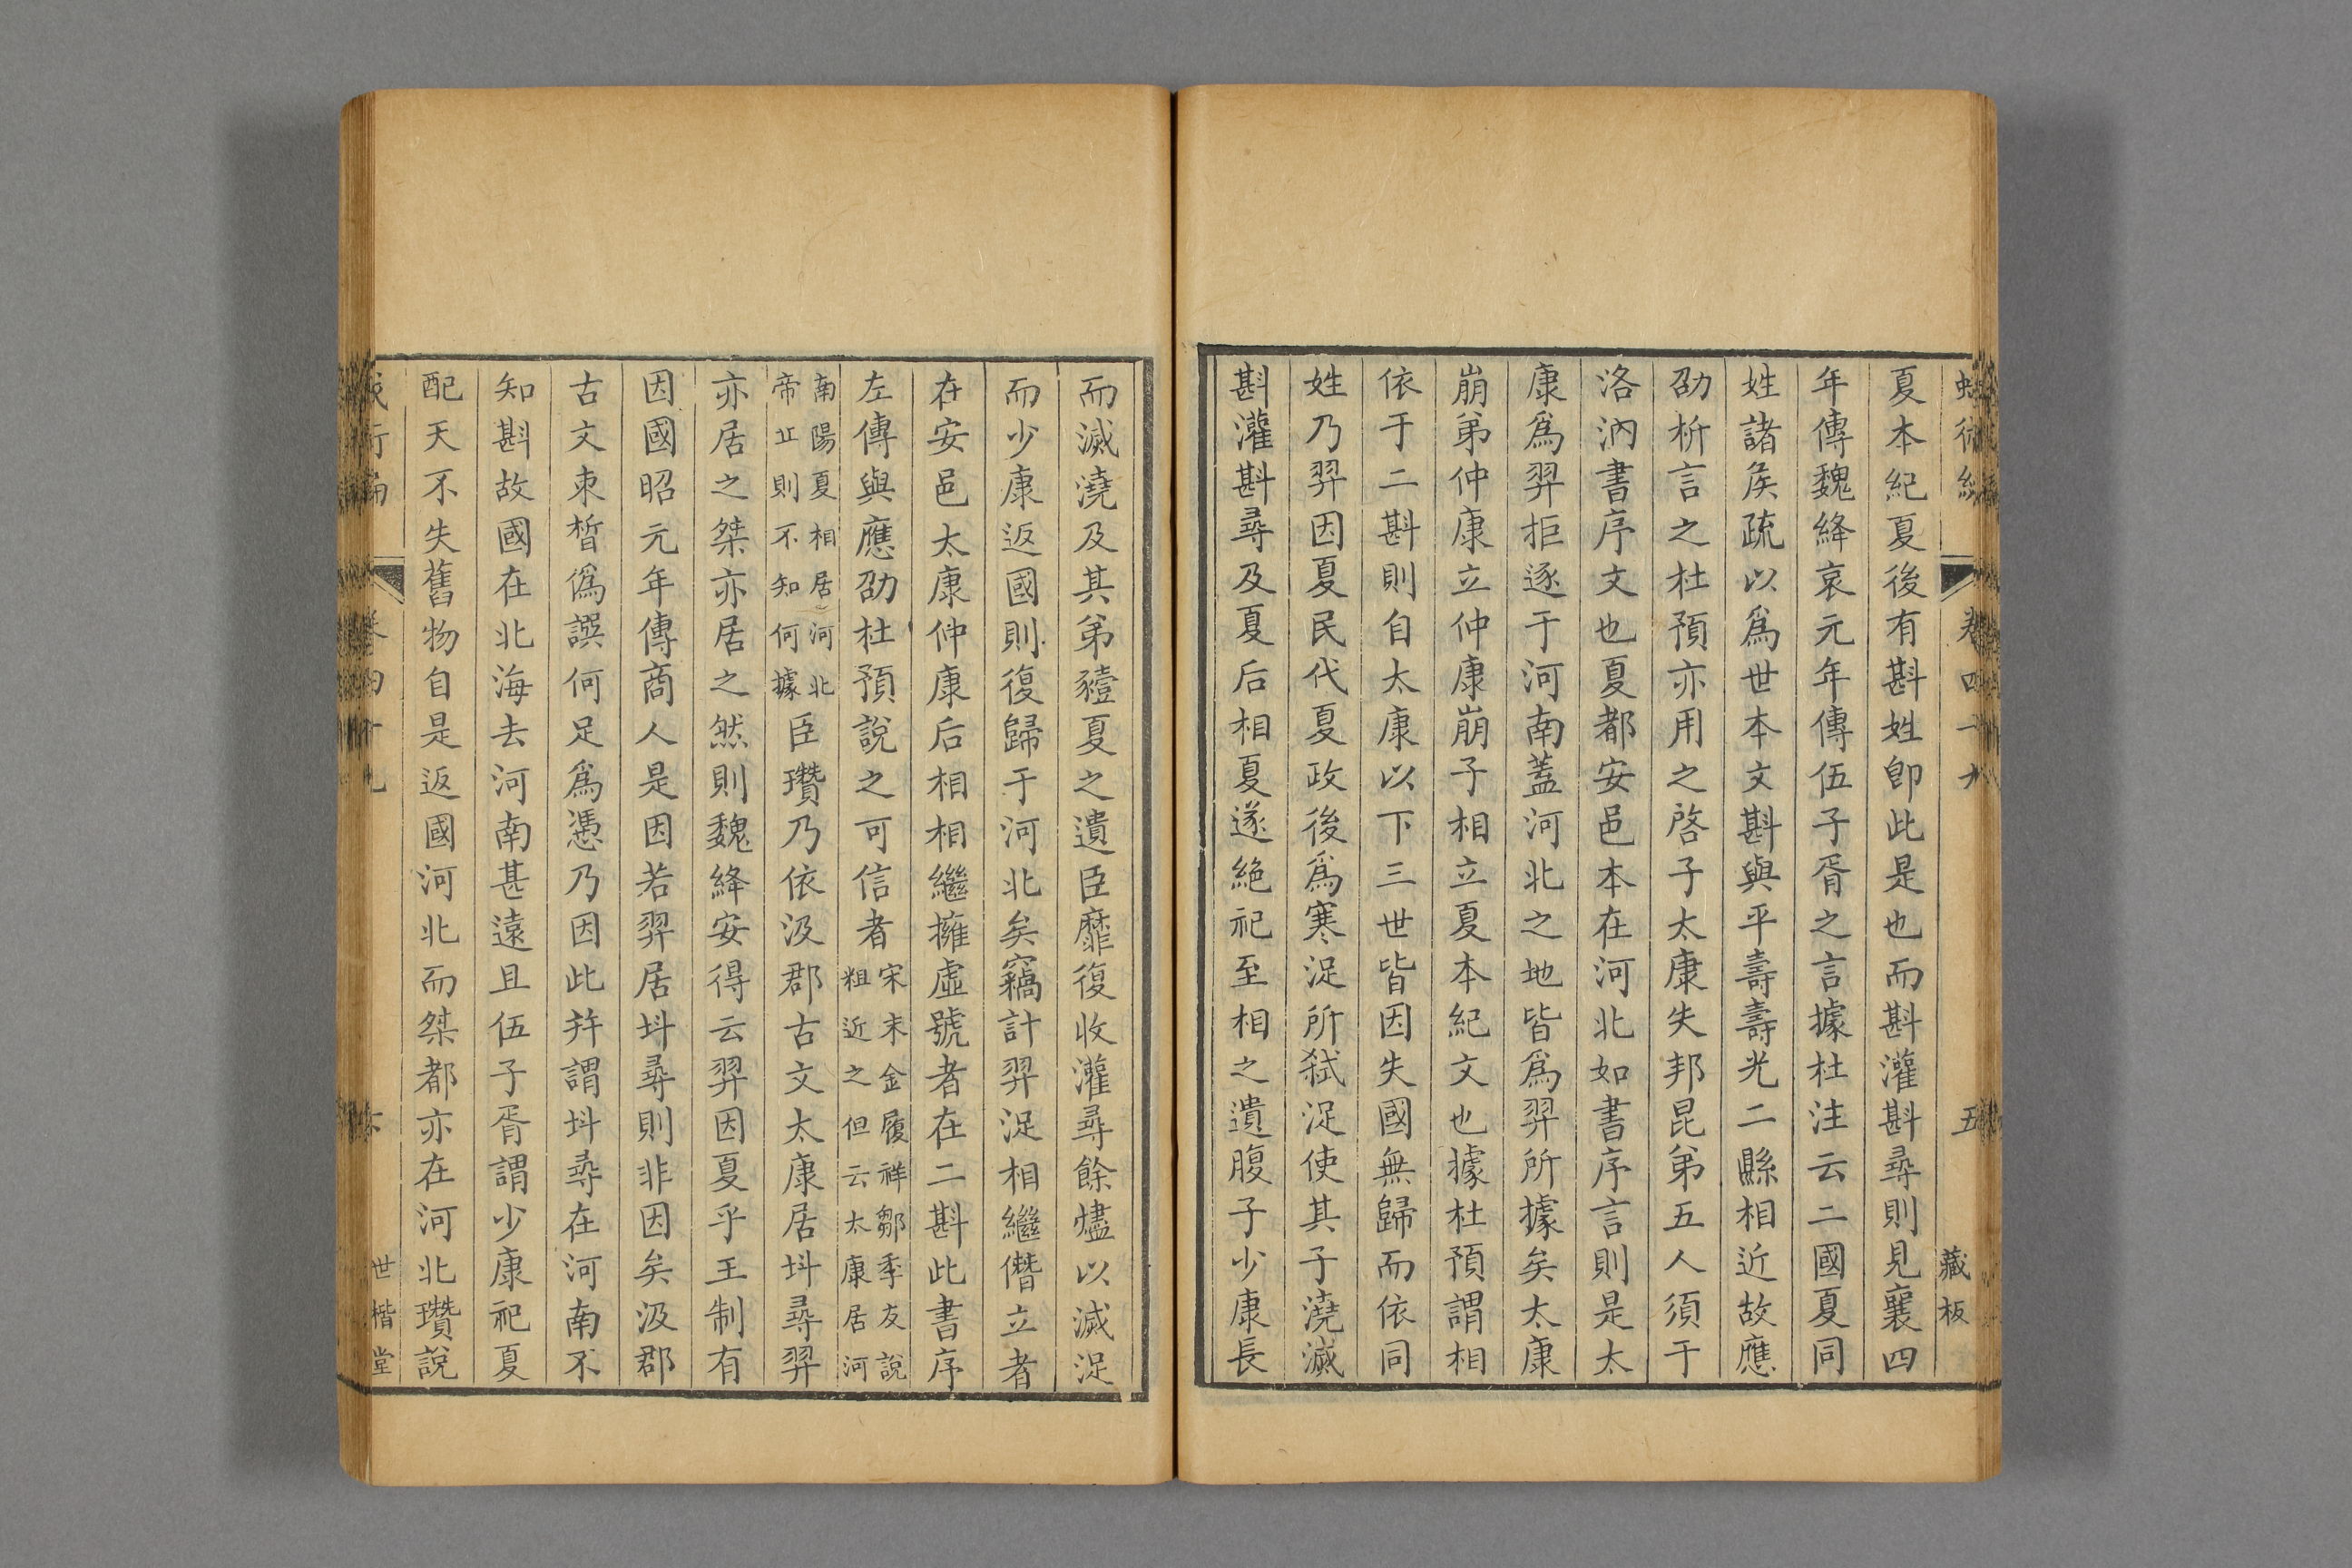 卷四十九
五
藏板
夏本紀夏後有斟姓卽此是也而斟灌斟尋則見襄四
年傳魏絳哀元年傳伍子胥之言據杜注云二國夏同
姓諸矦疏以爲世本文斟與平壽壽光二縣相近故應
劭析言之杜預亦用之啓子太康失邦昆弟五人須于
洛汭書序文也夏都安邑本在河北如書序言則是太
康爲羿拒逐于河南蓋河北之地皆爲羿所據矣太康
崩弟仲康立仲康崩子相立夏本紀文也據杜預謂相
依于二斟則自太康以下三世皆因失國無歸而依同
姓乃羿因夏民代夏政後爲寒浞所弑浞使其子澆滅
斟灌斟尋及夏后相夏遂絶祀至相之遺腹子少康長
而滅澆及其弟豷夏之遺臣靡復收灌尋餘燼以滅浞
而少康返國則復歸于河北矣竊計羿浞相繼僭立者
在安邑太康仲康后相相繼擁虛號者在二斟此書序
左傳與應劭杜預說之可信者宋末金履祥鄒季友說
粗近之但云太康居河
南陽夏相居河北
帝丘則不知何據臣瓚乃依汲郡古文太康居㪷尋羿
亦居之桀亦居之然則魏絳安得云羿因夏乎王制有
因國昭元年傳商人是因若羿居㪷尋則非因矣汲郡
古文束皙僞譔何足爲憑乃因此幷謂㪷尋在河南不
知斟故國在北海去河南甚遠且伍子胥謂少康祀夏
配天不失舊物自是返國河北而桀都亦在河北瓚說
卷四十九
六
世楷堂